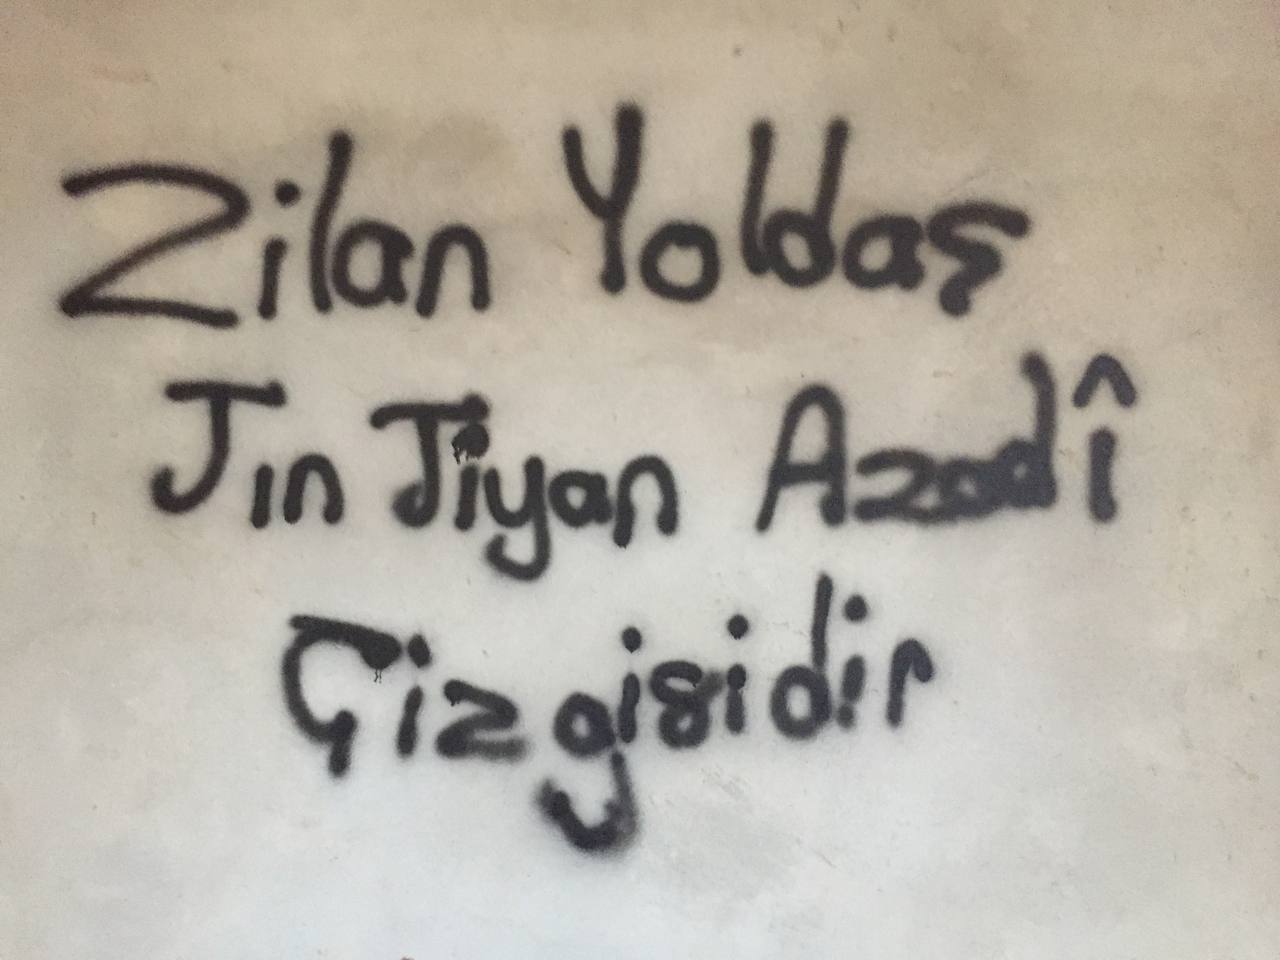 Zilan Yoldaş
Jın Jiyan Azadî
Çizgisidir